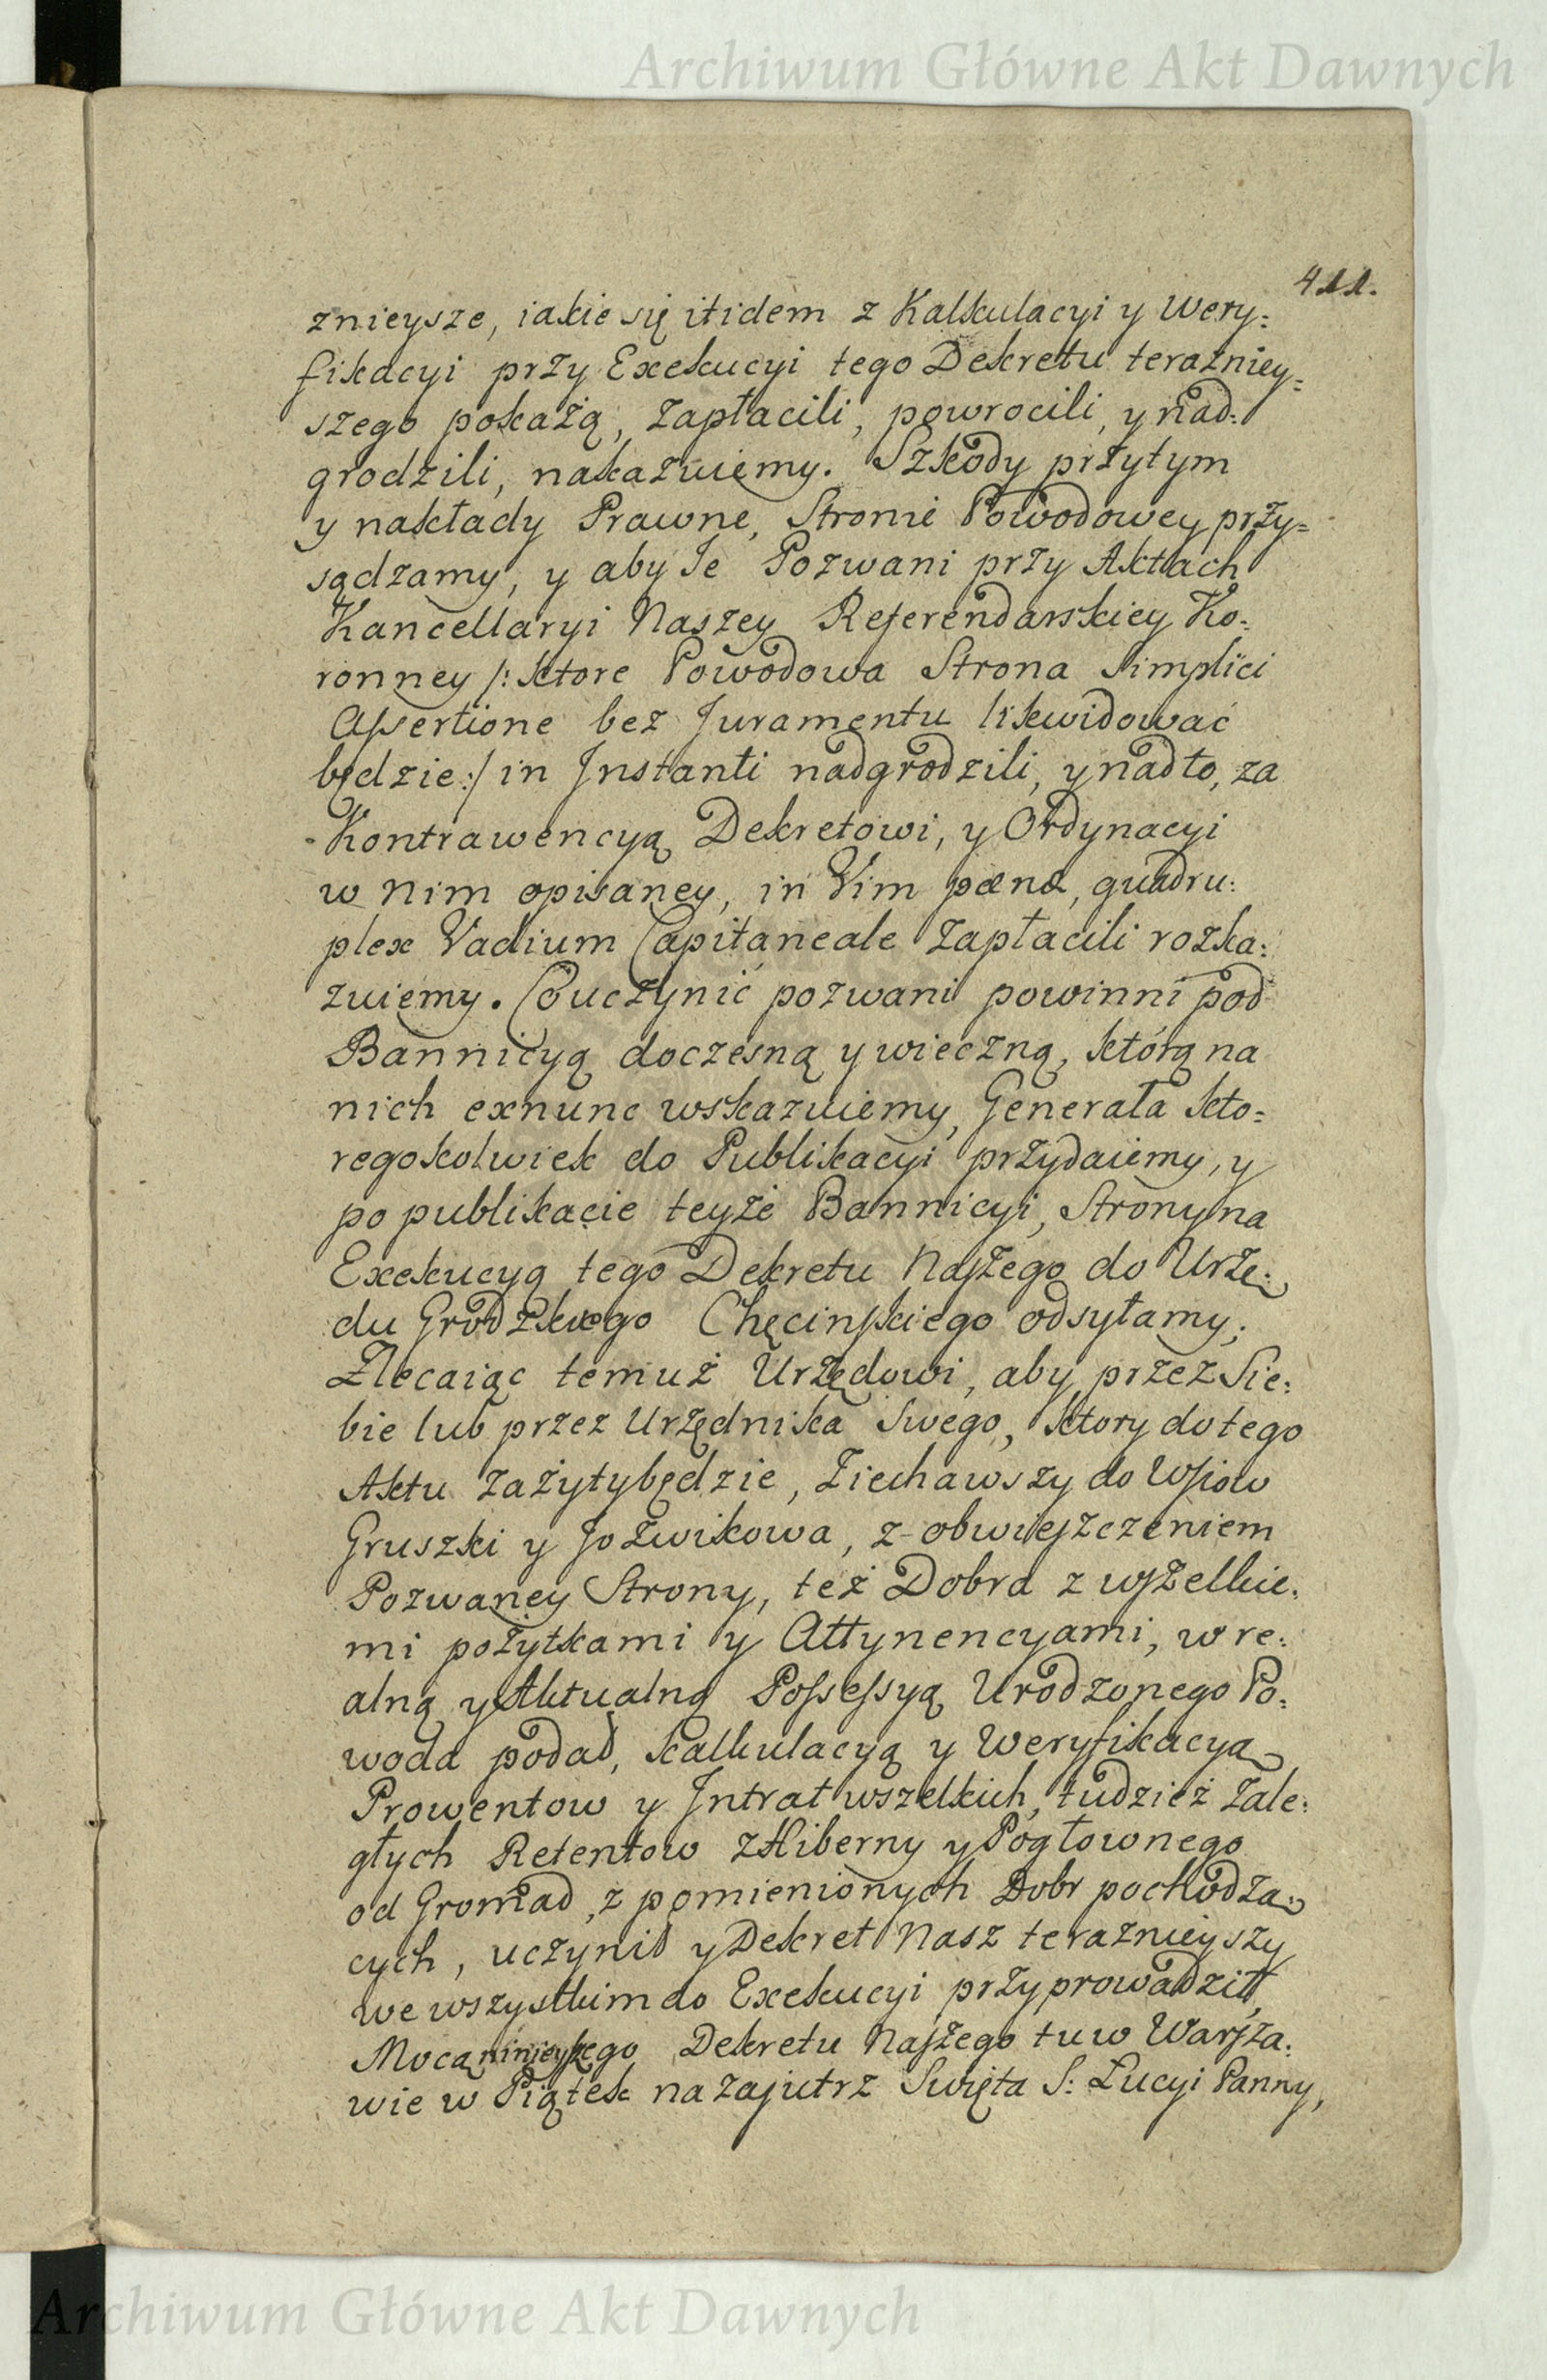 Archiwum Główne Akt Dawnych
411.
znieysze, iakie się itidem z Kalkulacyi y Wery:
fikacyi przy Exekucyi tego Dekretu teraźniey=
szego pokażą, zapłacili, powrocili, y nad:
grodzili, nakazuiemy. Szkody przytym
y nakłady Prawne, Stronie Powodowey przy=
sądzamy, y aby Je Pozwani przy Aktach
Kancellaryi Naszey Referendarskiey Ko:
ronney /: ktore Powodowa Strona Simplici
Assertione bez Juramentu likwidować
będzie :/ in Instanti nadgrodzili, y nad to, za
Kontrawencyą Dekretowi, y Ordynacyi
w nim opisaney, in Vim pænæ, quadru:
plex Vadium Capitaneale zapłacili rozka:
zuiemy. Co uczynić pozwani powinni pod
Bannicyą doczesną y wieczną, którą na
nich exnunc wskazuiemy, Generała kto=
regokolwiek do Publikacyi przydaiemy, y
po publikacie teyże Bannicyi, Strony na
Exekucyą tego Dekretu Naszego do Urzę:
du Grodzkiego Chęcinskiego odsyłamy;
Zlecaiąc temuż Urzędowi, aby przez Sie:
bie lub przez Urzędnika Swego, ktory do tego
Aktu zażyty będzie, Ziechawszy do Wsiow
Gruszki y Jozwikowa, z obwieszczeniem
Pozwaney Strony, też Dobra z wszelkie:
mi pożytkami y Attynencyami, w re:
alną y Aktualną Possessyą Urodzonego Po:
woda podał, kalkulacyą y Weryfikacyą
Prowentow y Intrat wszelkich, tudzież Zale:
głych Retentow z Hiberny y Pogłownego
od Gromad, z pomienionych Dobr pochodzą:
cych, uczynił y Dekret Nasz teraznieyszy
we wszystkim do Exekucyi przyprowadził,
Mocą ninieyszego Dekretu Naszego tu w Warsza:
wie w Piątek nazajutrz Swięta S: Lucyi Panny,
Archiwum Główne Akt Dawnych